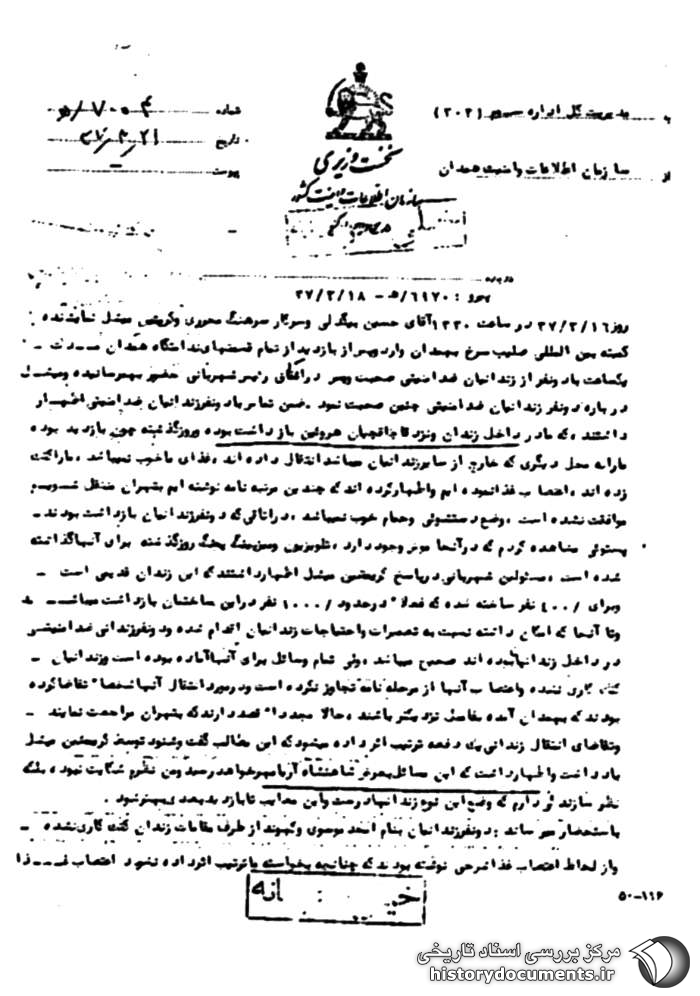 به مدیریت کل اداره سوم (302)
از سازمان اطلاعات وامنیت همدان
شماره
تاریخ
پیوست
نخست وزیری
سازمان اطلاعات و امنیت کشور
درباره
پیرو : 6970/هـ - 37/3/18
روز 37/3/16 در ساعت 1330 آقای حسین بیگدلی وسرکار سرهنگ محرری وکریستین میشل نماینده
کمیته بین المللی صلیب سرخ بهمدان وارد وپس از بازدید از تمام قسمتهای ندامتگاه همدان مدت
یکساعت بادونفر از زندانیان ضدامنیتی صحبت وپس دراطاق رئیس شهربانی حضور بهمرسانیده ومیشل
درباره دونفر زندانیان ضدامنیتی چنین صحبت نمود . ضمن تماس بادونفر زندانیان ضدامنیتی اظهار
داشتند ، که مادر داخل زندان ونزد قاچاقچیان هروئین بازداشت بوده وروزگذشته چون بازدید بوده
مارابه محل دیگری که خارج از سایر زندانیان میباشد انتقال داده اند ، غذای ماخوب نمیباشد ، ماراکتک
زده اند ، اعتصاب غذانموده ایم واظهارکرده اند که چندین مرتبه نامه نوشته ایم بتهران منتقل شویم
موافقت نشده است ، وضع دستشوئی وحمام خوب نمیباشد ، دراتاقی که دونفر زندانیان بازداشت بودند
مشاهده کردم که درآنجا موجود دارد ، تلویزیون روزگذشته برای آنهاگذاشته
شده است ، مسئولین شهربانی درپاسخ کریستین میشل اظهارداشتند که این زندان قدیمی است
وبرای /400 نفر ساخته شده که فعلا" درحدود /1000 نفر دراین ساختمان بازداشت میباشد
وتا آنجا که امکان داشته نسبت به تعمیرات واحتیاجات زندانیان اقدام شده ودونفر زندانی ضدامنیتی
در داخل زندانیان بوده اند صحیح میباشد ، ولی تمام وسائل برای آنهاآماده بوده است وزندانیان
کتک کاری نشده واعتصاب آنها از مرحله نامه تجاوز نکرده است ودرمورد انتقال آنها شخصا" تقاضاکرده
بودند که بهمدان آمده بفامیل نزدیکتر باشند ، حالا مجددا" قصد دارند که بتهران مراجعت نمایند
وتقاضای انتقال زندانی یک دفعه ترتیب اثر داده میشود که این مطالب گفت وشنود توسط کریستین میشل
یادداشت واظهارداشت که این مسائل بعرض شاهنشاه آریامهر خواهد رسید ومن نظرم شکایت نبوده بلکه
نظر سازنده ای دارم که وضع این نوع زندانها درست واین معایب تابازدید بعدی بهتر شود .
باستحضار میرساند : دونفر زندانیان بنام موسوی از طرف مقامات زندان کتک کاری نشده
واز لحاظ اعتصاب غذا شرحی نوشته بودند که چنانچه بخواسته ماترتیب اثر داده نشود اعتصاب غذا
50-116
مرکز بررسی اسناد تاریخی
historydocuments.ir